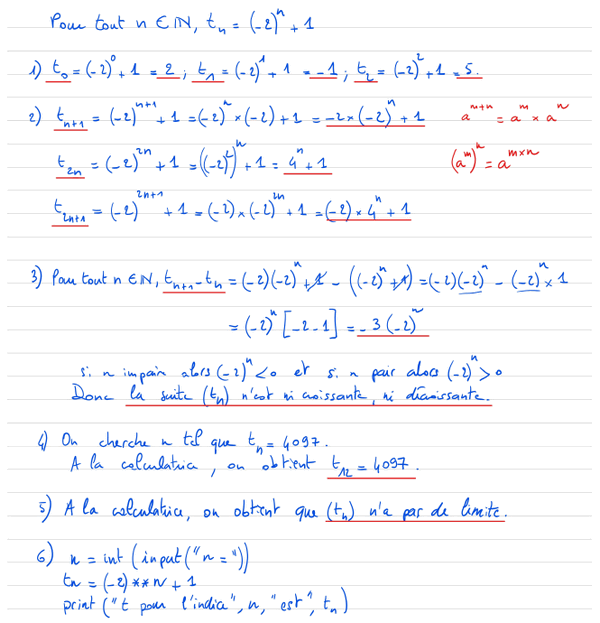 Pour tout n ∈ ℕ, tₙ = (-2)ⁿ + 1
1) t₀ = (-2)⁰ + 1 = 2 ; t₁ = (-2)¹ + 1 = -1 ; t₂ = (-2)² + 1 = 5.
2) tₙ₊₁ = (-2)ⁿ⁺¹ + 1 = (-2)ⁿ × (-2) + 1 = -2 × (-2)ⁿ + 1 aᵐ⁺ⁿ = aᵐ × aⁿ
t₂ₙ = (-2)²ⁿ + 1 = ((-2)²)ⁿ + 1 = 4ⁿ + 1 (aᵐ)ⁿ = aᵐˣⁿ
t₂ₙ₊₁ = (-2)²ⁿ⁺¹ + 1 = (-2) × (-2)²ⁿ + 1 = (-2) × 4ⁿ + 1
3) Pour tout n ∈ ℕ, tₙ₊₁ - tₙ = (-2)(-2)ⁿ + 1 - ((-2)ⁿ + 1) = (-2)(-2)ⁿ - (-2)ⁿ × 1
= (-2)ⁿ [-2 - 1] = -3 (-2)ⁿ
si n impair alors (-2)ⁿ < 0 et si n pair alors (-2)ⁿ > 0
Donc la suite (tₙ) n'est ni croissante, ni décroissante.
4) On cherche n tel que tₙ = 4097.
A la calculatrice, on obtient t₁₂ = 4097.
5) A la calculatrice, on obtient que (tₙ) n'a pas de limite.
6) n = int (input("n = "))
tn = (-2) ** n + 1
print ("t pour l'indice", n, "est", tn)